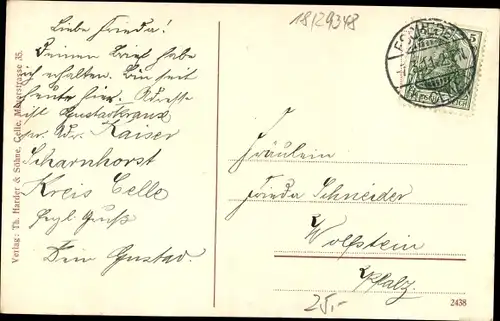 Liebe Frieda!
Deinen Brief habe
ich erhalten. Bin seit
heute hier. Adresse
ist Gustav
pr. Adr. Kaiser
Scharnhorst
Kreis Celle
Hrzl. Gruß
Dein Gustav.
Verlag: Th. Harder & Söhne, Celle, Mauerstrasse 35.
18/29348
5
Fräulein
Frieda Schneider
Wolfstein
Pfalz.
25,-
2438